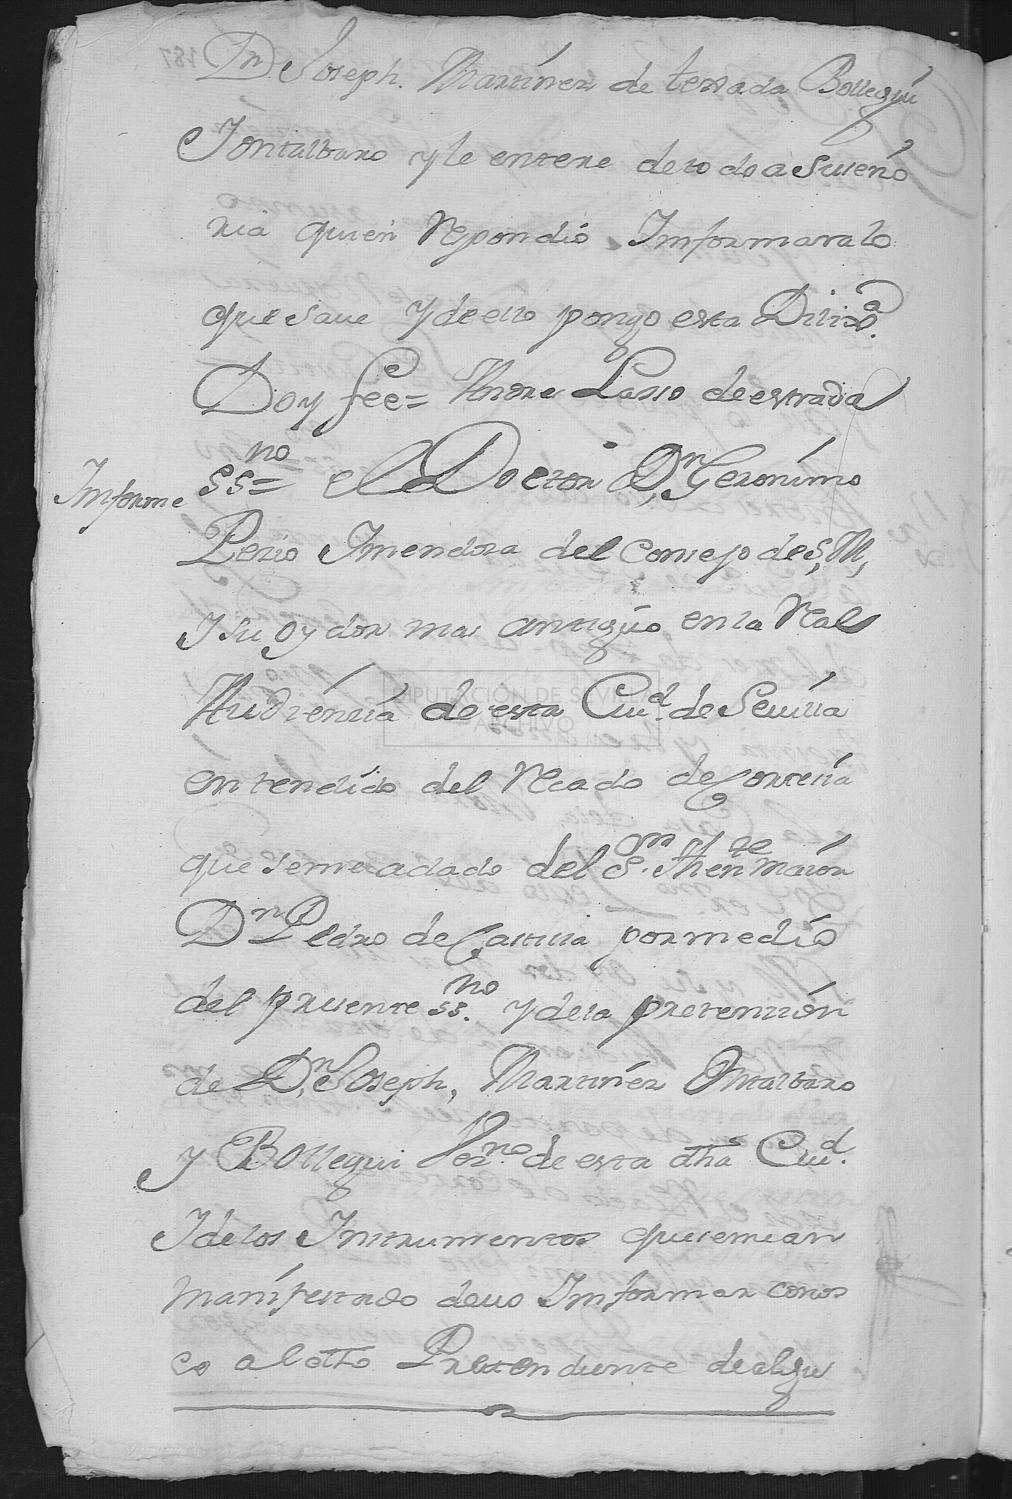 Dn. Joseph. Martinez de texada Bottegui
Jontalbaro y le entere de todo a Sueño
ria quien Respondió Imformara lo
que save y de ello pongo esta Dilixa.
Doy fee= Andre Lasso de estrada
Informe ssno= el Doctor Dn. Geronimo
Perio Imendoza del Consejo de S, M,
Y su oydor mas antiguo en la Real
Audiencia de esta Ciud. de Sevilla
entendido del Recado de Cortesia
que seme a dado del Sor. Thente maior
Dn Pedro de Castilla por medio
del presente ssno. y de la pretencion
de Dn. Joseph, Martinez Ontalbaro
y Bottegui Vezno. de esta dha Ciud.
Y de los Instrumentos que seme an
manifestado devo Imformar conos
co al dho Pretendiente de algu
DIPUTACIÓN DE SEVILLA
ARCHIVO